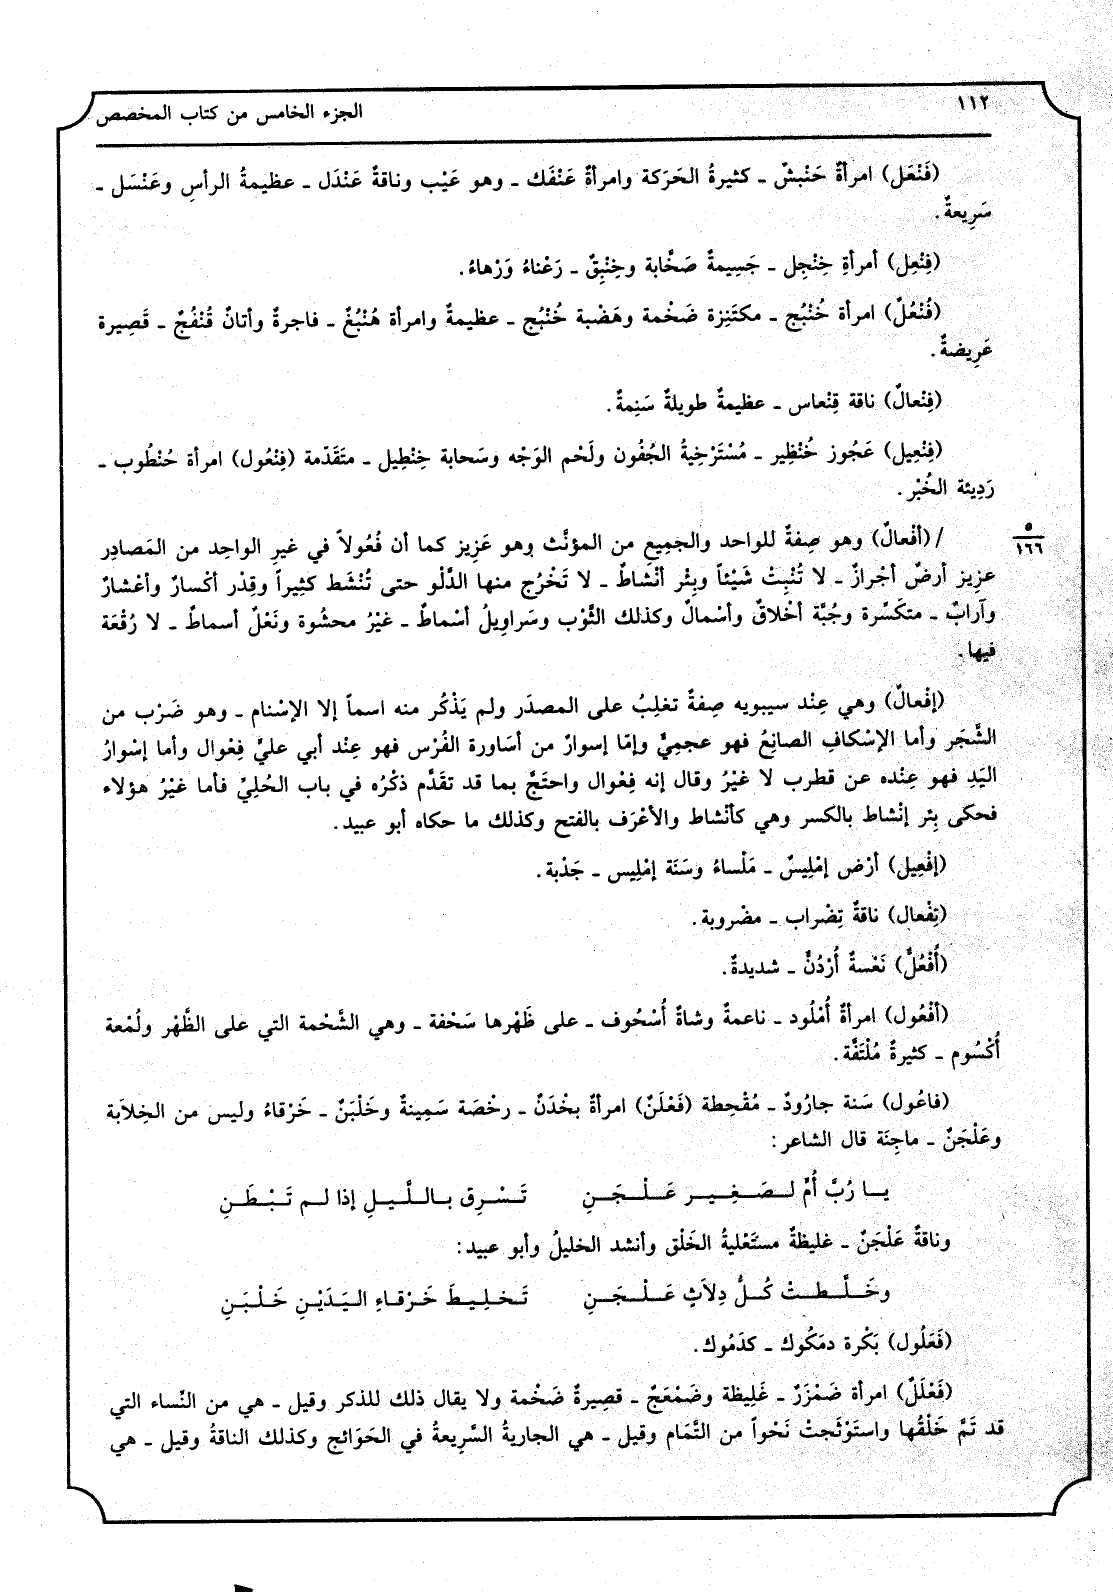 ١١٢
الجزء الخامس من كتاب المخصص
(فَنْعَل) امرأةٌ حَنْبشٌ ـ كثيرةُ الحَرَكة وامرأةٌ عَنْفَك ـ وهو عَيْب وناقةٌ عَنْدَل ـ عظيمةُ الرأسِ وعَنْسَل ـ
سَرِيعةٌ.
(فِنْعِل) أمرأةِ خِنْجِل ـ جَسِيمةٌ صَخَّابة وخِنْبِقٌ ـ رَعْناءُ وَرْهاءُ.
(فُنْعُلٌ) امرأة خُنْبُج ـ مكتَنِزة ضَخْمة وهَضْبة خُنْبُج ـ عظيمةٌ وامرأة هُنْبُغٌ ـ فاجرةٌ وأتانٌ قُنْفُجٌ ـ قَصِيرة
عَرِيضةٌ.
(فِنْعالٌ) ناقة قِنْعاس ـ عظيمةٌ طويلةٌ سَنِمةٌ.
(فِنْعِيل) عَجُوز خُنْظِير ـ مُسْتَرْخِيةُ الجُفُون ولَحْم الوَجْه وسَحابة خِنْطِيل ـ متَقَدّمة (فِنْعُول) امرأة حُنْطُوب ـ
رَدِيئة الخُبْر.
٥
١٦٦
/ (أفْعالٌ) وهو صِفةٌ للواحد والجميعِ من المؤنَّث وهو عَزِيز كما أن فُعُولاً في غيرِ الواحِد من المَصادِر
عزِيز أرضٌ أجْرازٌ ـ لا تُنْبِتْ شَيْئاً وبِئْر أنْشاطٌ ـ لا تَخْرُج منها الدَّلْو حتى تُنْشَط كثِيراً وقِدْر أكْسارٌ وأعْشارٌ
وآرابٌ ـ متكَسِّرة وجُبَّة أخْلاقٌ وأسْمالٌ وكذلك الثَّوْب وسَراوِيلُ أسْماطٌ ـ غيْرُ محشُوة ونَعْلٌ أسماطٌ ـ لا رُقْعَة
فيها.
(إفْعالٌ) وهي عِنْد سيبويه صِفةٌ تغلِبُ على المصدَر ولم يَذْكُر منه اسماً إلا الإسْنام ـ وهو ضَرْب من
الشَّجَر وأما الإسْكافِ الصانِعُ فهو عجمِيٌّ وإمّا إسوارٌ من أسَاورة الفُرْس فهو عِنْد أبي عليٍّ فِعْوال وأما إسْوارُ
اليَدِ فهو عِنْده عن قطرب لا غيْرُ وقال إنه فِعْوال واحتَجَّ بما قد تقدَّم ذكْرُه في باب الحُلِيِّ فأما غيْرُ هؤلاء
فحكى بِئر إنْشاط بالكسر وهي كأنْشاط والأعْرَف بالفتح وكذلك ما حكاه أبو عبيد.
(إفْعِيل) أرْض إمْلِيسٌ ـ مَلْساءُ وسَنَة إمْلِيس ـ جَدْبة.
(تِفْعال) ناقةٌ تِضْراب ـ مضْروبة.
(أُفْعُلٌّ) نَعْسةٌ أُرْدُنٌّ ـ شديدةٌ.
(أفْعُول) امرأةٌ أُمْلُود ـ ناعمةٌ وشاةٌ أُسْحُوف ـ على ظَهْرها سَحْفة ـ وهي الشَّحْمة التي على الظَّهْر ولُمْعة
أُكْسُوم ـ كثيرةٌ مُلْتَفَّة.
(فاعُول) سَنة جارُودٌ ـ مُقْحِطة (فَعْلَنٌ) امرأةٌ بخْدَنٌ ـ رخْصَة سَمِينةٌ وخَلْبَنٌ ـ خَرْقاءُ وليس من الخِلاَبة
وعَلْجَنٌ ـ ماجِنَة قال الشاعر:
يا رُبَّ أُمٍّ لصَغِير عَلْجَنِ تَسْرِق بالَّليلِ إذا لم تَبْطَنِ
وناقةٌ عَلْجَنٌ ـ غليظةٌ مستَعْليةُ الخَلْق وأنشد الخليلُ وأبو عبيد:
وخَلَّطتْ كُلُّ دِلاَثٍ عَلْجَنِ تَخلِيطَ خَرْقاءِ اليَدَيْنِ خَلْبَنِ
(فَعَلُول) بَكْرة دمَكُوك ـ كدَمُوك.
(فَعْلَلٌ) امرأة ضَمْزَرٌ ـ غَلِيظة وضَمْعَجٌ ـ قصِيرةٌ ضَخْمة ولا يقال ذلك للذكر وقيل ـ هي من النّساء التي
قد تَمَّ خَلْقُها واستَوْثَجتْ نَحْواً من التَّمَام وقيل ـ هي الجاريةُ السَّرِيعةُ في الحَوَائج وكذلك الناقةُ وقيل ـ هي